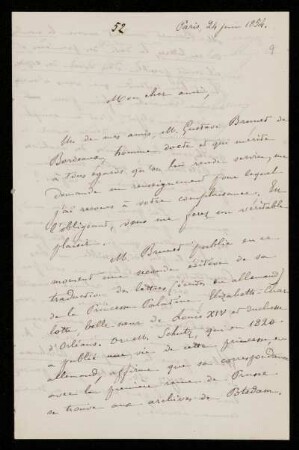 52
Paris, 24 juin 1854.
9
Mon cher ami,
Un de mes amis, M. Gustave Brunet de
Bordeaux, homme docte et qui mérite
à tous égards qu'on lui rende service, me
demande un renseignement pour lequel
j'ai recours à votre complaisance. En
l'obligeant, vous me ferez un véritable
plaisir.
M. Brunet publie en ce
moment une seconde édition de sa
traduction des lettres (écrites en allemand)
de la Princesse Palatine Elisabeth-Char
lotte, belle-sœur de Louis XIV et duchesse
d'Orléans. Or Mr. Schütz, qui en 1820
a publié une vie de cette princesse, en
allemand, affirme que sa correspondance
avec la première reine de Prusse
se trouve aux archives de Potsdam.